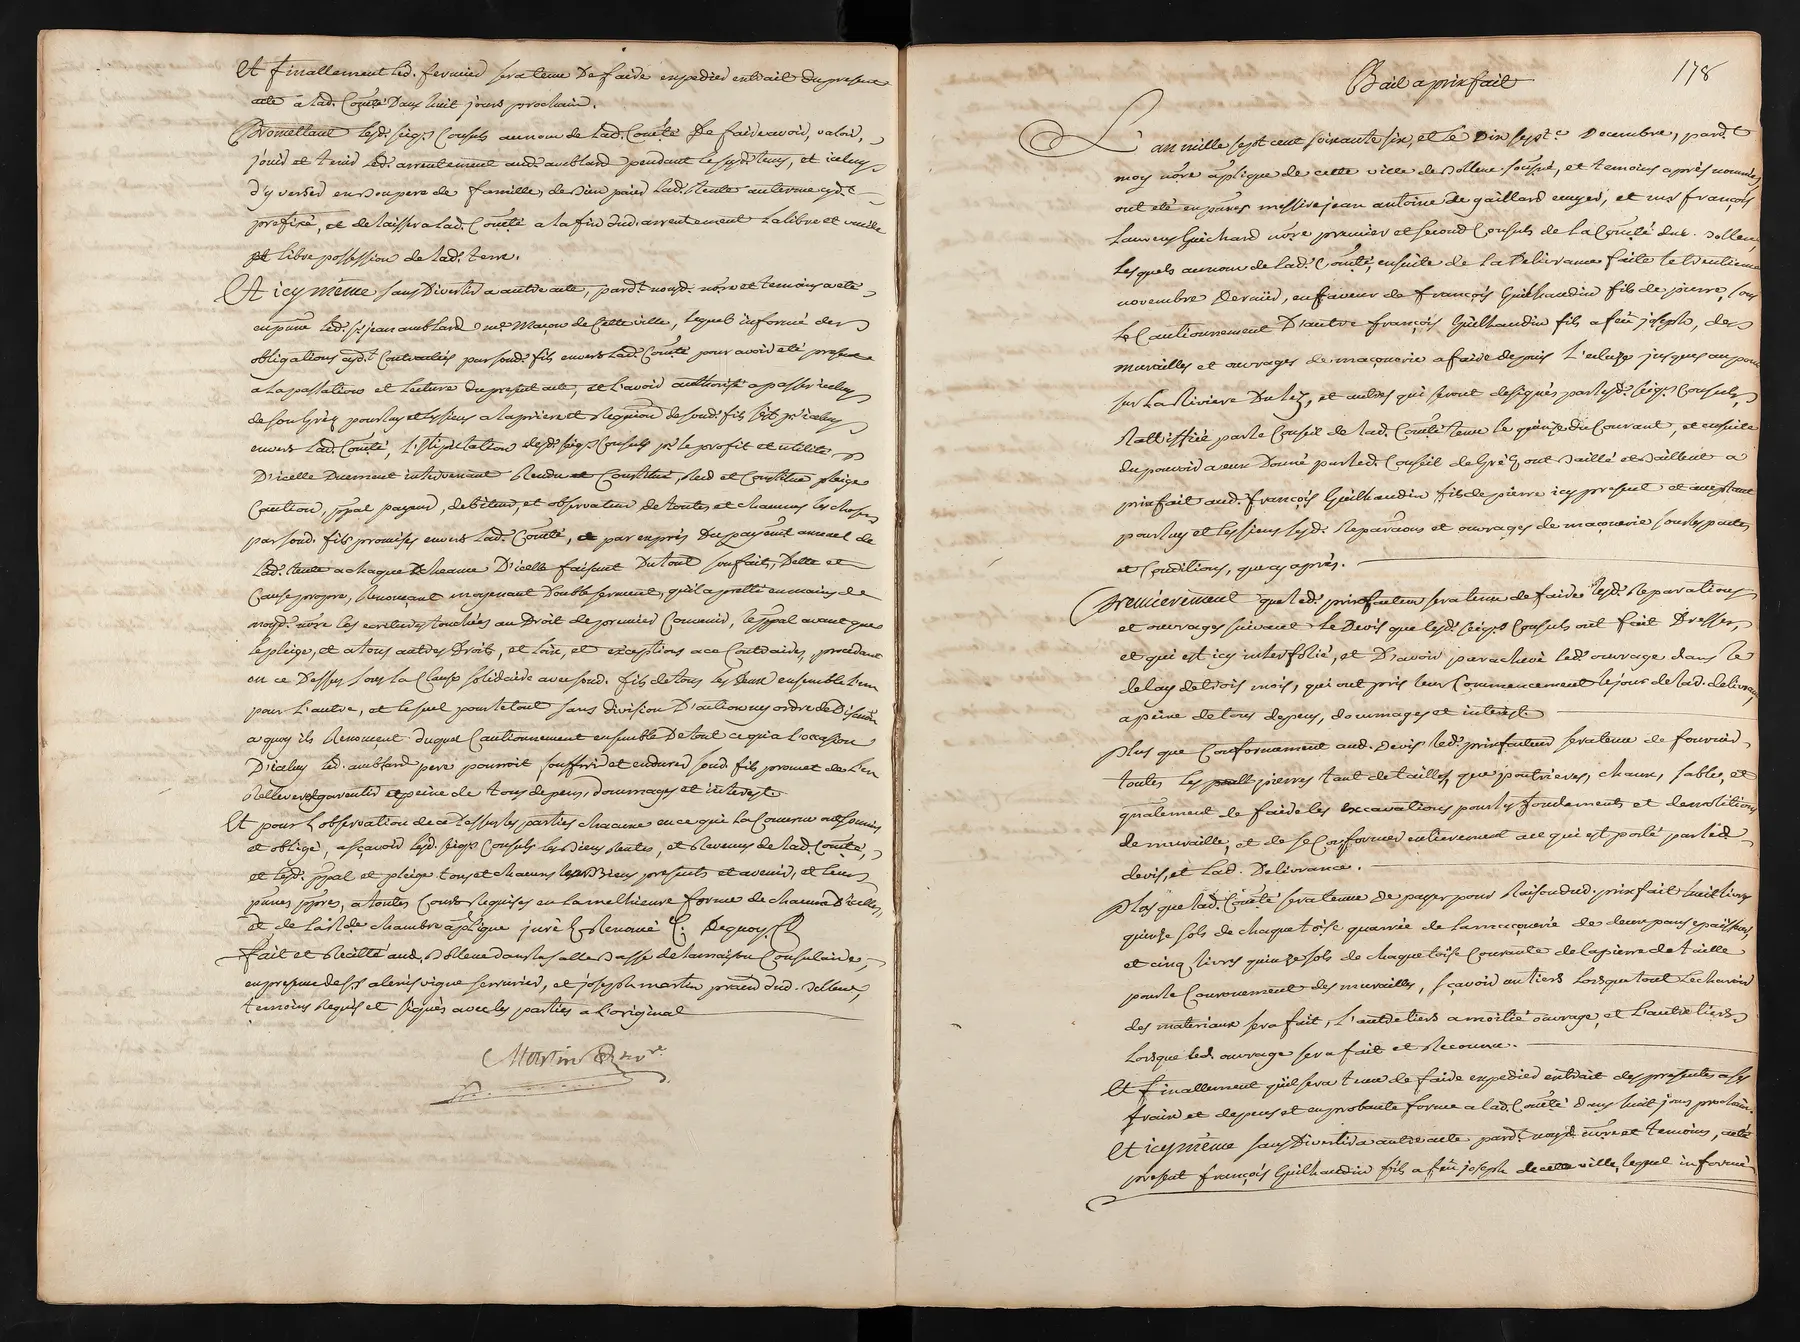 Et finallement led. fermier sera tenu de faire expedier extrait du present
acte a lad. Com̃té dans huit jours prochain.
Promettant lesd. sieg.rs Consuls au nom de lad. Com̃té de faire avoir, valoir,
jouir et tenir led. arrentement aud. amblard pendant le susd. tems, et icelluy
d'y verser en bon pere de famille, de bien paier lad. Rente au terme cyd.t
prefixé, et de laisser a lad. Com̃té a la fin dud. arrentement la libre et vuide
et libre possession de lad. terre.
Et icy même sans divertir a autre acte, pard.t nousd. no.re et temoins a eté
en p̃nne led. s.r jean amblard m.e Maçon de Cette ville, lequel informé des
obligations cyd.t Contractées par sond. fils envers lad. Com̃té pour avoir eté present
a la passation et lecture du present acte, et l'avoir authorisé a passer icelluy
de son Gré, pour luy et les siens a la priere et Requi͠on de sond. fils s'est p.r icelluy
envers lad. Com̃té, l'stipulation desd. sieg.rs Consuls p.r le profit et utilité
D'icelle duement intervenant Rendu et Constitué, Rend et Constitue pleige
Caution, pp̃al payeur, debiteur, et observateur de toutes et chacunes les choses
par sond. fils promises envers lad. Com̃té, et par exprés du payem̃t annuel de
lad. Rente a chaque echeance D'icelle faisant du tout son fait, Dette et
Cause propre, Renonçant moyenant double serment, qu'il a pretté en mains de
nousd. no.re les ecritures touchées au Droit de premier Convenir, le pp̃al avant que
le pleige, et a tous autres Droits, et loix, et exceptions a ce Contraires, procedant
en ce Dessus sous la Clause solidaire avec sond. fils de tous les deux ensemble l'un
pour l'autre, et le seul pour le tout sans division D'action ny ordre de Discution
a quoy ils Renoncent duquel Cautionnement ensemble de tout ce qui a l'occasion
D'icelluy led. amblard pere pourroit souffrir et endurer sond. fils promet de l'en
Relever et garentir a peine de tous depens, dommages et interest.
Et pour l'observation de ce Dessus les parties chacune en ce qui la Concerne ont soumis
et obligé, asçavoir lesd. sieg.rs Consuls les Biens Rentes, et Revenus de lad. Com̃té,
et lesd. pp̃al et pleige tous et chacuns leurs Biens presents et avenir, et leurs
p̃nnes p̃pre, a toutes Cours Requises en la meilheure forme de chacune D'icelles,
et de la R.de chambre ap̃lique juré & Renoncé &. Dequoy &
fait et Recitté aud. Bollene dans la salle basse de la maison Consulaire,
en presence de s.rs alexis vigne serrurier, et joseph martin praticien dud. Bollene,
temoins Requis et signés avec les parties a L'original
Martin

178
Bail a prix fait
L'an mille sept cent soixante six, et le dix sept.e decembre, pard.t
moy no.re ap̃lique de cette ville de Bollene soussigné, et temoins aprés nommés
ont eté en p̃nnes messire jean antoine de gaillard ecuyer, et m.e françois
laurens Guichard no.re premier et second Consuls de la Com̃té dud. Bollene
Lesquels au nom de lad. Com̃té, ensuite de la Delivrance faite le trentieme
novembre Dernier, en faveur de françois Guilhaudin fils de pierre, sous
le Cautionnement D'autre françois Guilhaudin fils a feu joseph, des
murailles et ouvrages de maçonerie a faire depuis L'ecluse jusques au pont
sur La Riviere du lez, et autres qui seront designés par lesd. sieg.rs Consuls,
Rattiffiée par le Conseil de lad. Com̃té tenu le quinze du Courant, et ensuite
du pouvoir a eux Donné par led. Conseil de Gré ont baillé et baillent a
prix fait aud. françois Guilhaudin fils de pierre icy present et acceptant
pour luy et les siens lesd. Reparãons et ouvrages de maçonerie sous les pactes
et Conditions, que cy aprés.
Premierement que led. prixfacteur sera tenu de faire lesd. Reparations
et ouvrages suivant le Devis que lesd. sieg.rs Consuls ont fait Dresser,
et qui est icy interfolié, et D'avoir parachevé led. ouvrage dans le
delay de trois mois, qui ont pris leur Commencement le jour de lad. delivrance,
a peine de tous depens, dommages et interest
Plus que Conformement aud. Devis led. prixfacteur sera tenu de fournir
toutes les pierres tant de tailles, que poutrieres, chaux, sable, et
egualement de faire les excavations pour les fondements et demolitions
de muraille, et de se Conformer entierement a ce qui est porté par led.
devis, et lad. Delivrance.
Plus que lad. Com̃té sera tenue de payer pour Raison dud. prixfait huit livres
quinze sols de chaque toise quarrée de la maçonerie de deux pans epaisseur,
et cinq livres quinze sols de chaque toise Courante de la pierre de taille
pour le Couronement des murailles, sçavoir un tiers lorsque tout le charroir
des materiaux sera fait, l'autre tiers a moitié ouvrage, et L'autre tiers
lorsque led. ouvrage sera fait et Reconnu.
Et finallement qu'il sera tenu de faire expedier extrait des presentes a ses
fraix et depens et en probante forme a lad. Com̃té dans huit jours prochain.
Et icy même sans divertir a autre acte pard.t nousd. no.re et temoins, a eté
present françois Guilhaudin fils a feu joseph de cette ville, lequel informé